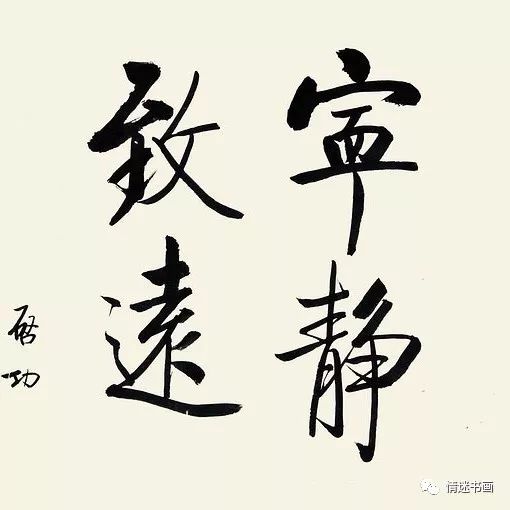 寧静
致遠
启功
情迷书画